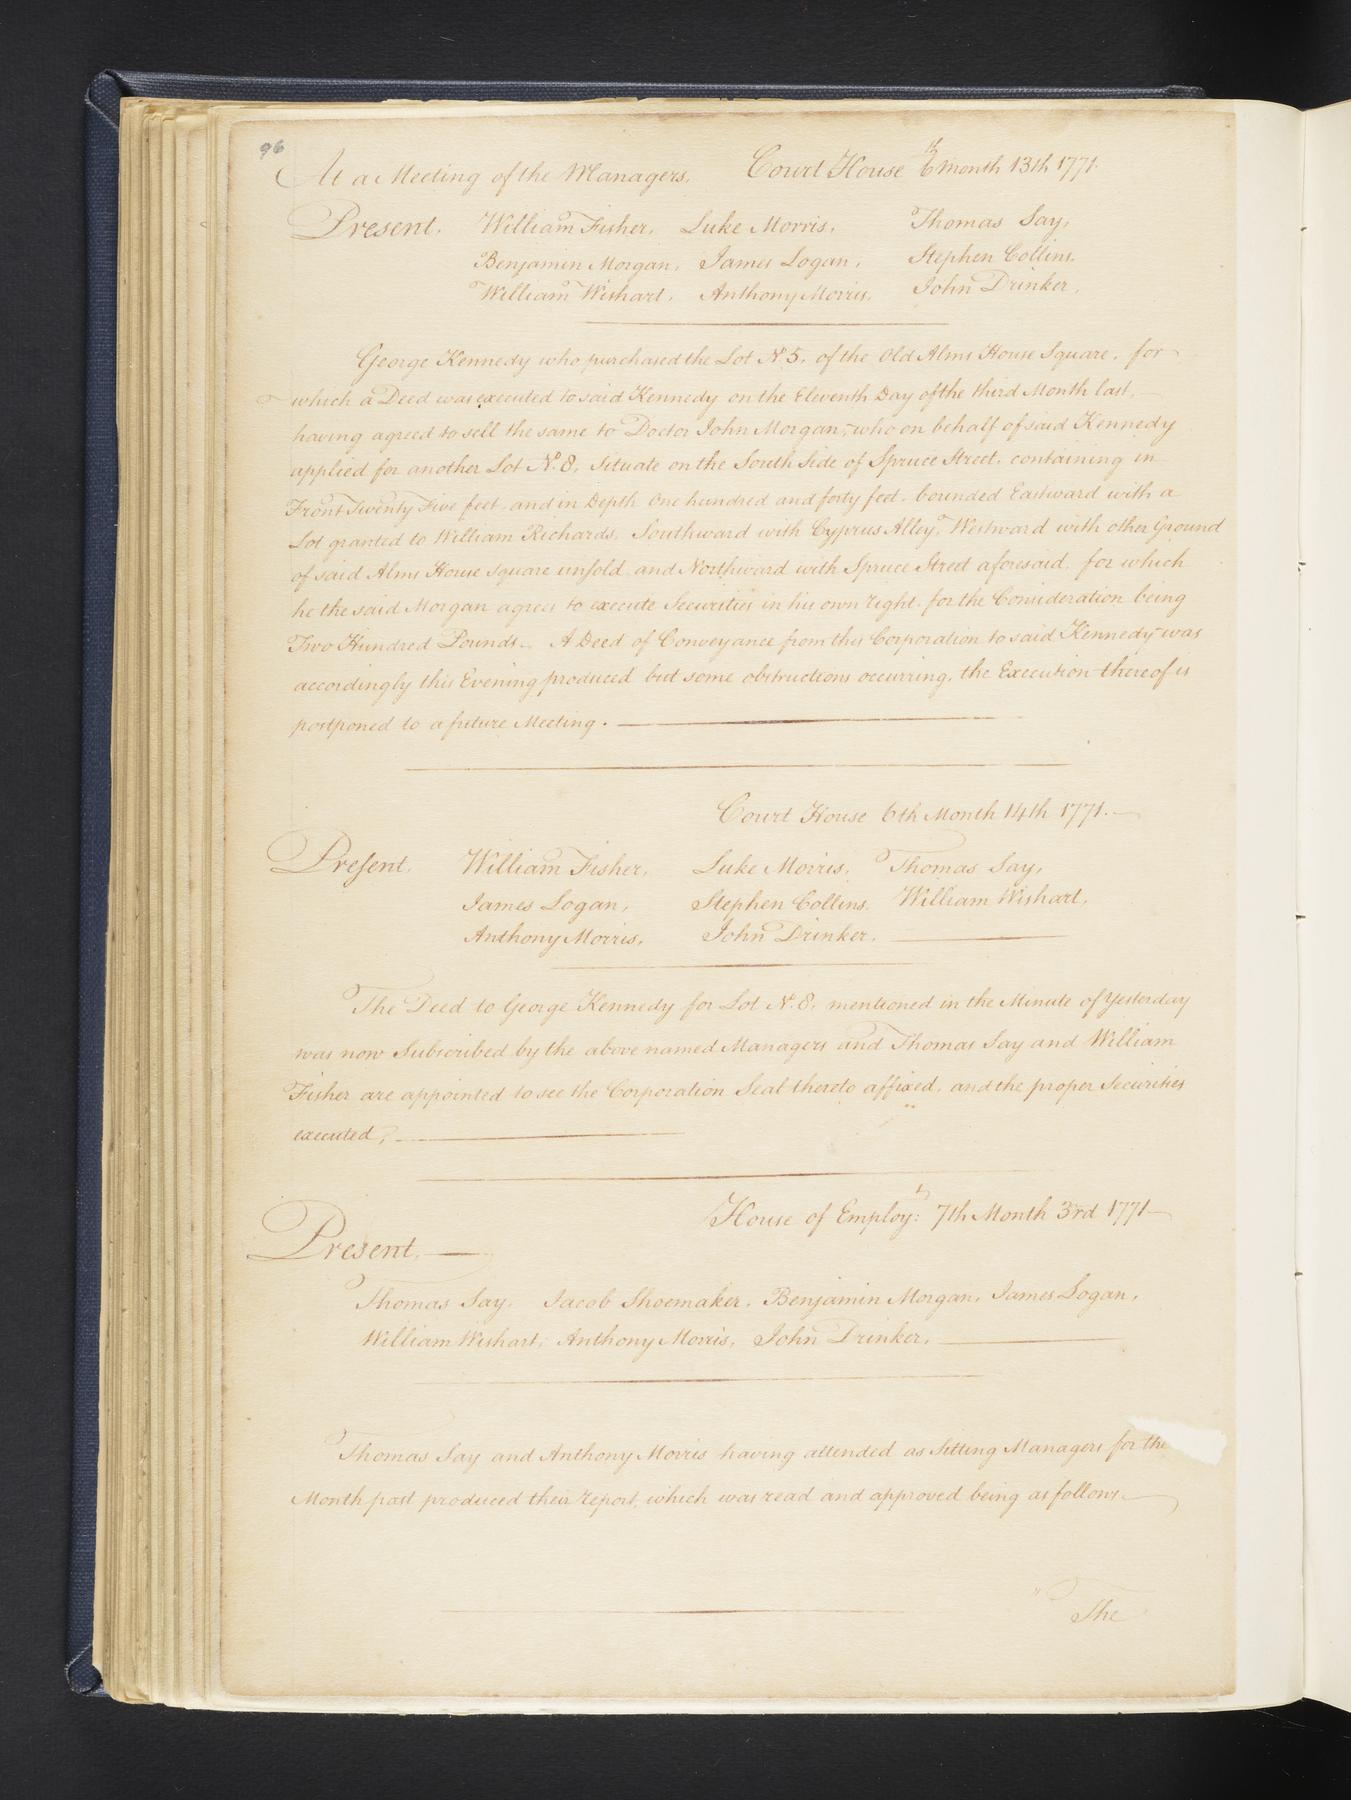 96
At a Meeting of the Managers, Court House 6th Month 13th 1771.
Present, William Fisher, Luke Morris, Thomas Say,
Benjamin Morgan, James Logan, Stephen Collins,
William Wishart, Anthony Morris, John Drinker,
George Kennedy who purchased the Lot No. 5. of the Old Alms House Square, for
which a Deed was executed to said Kennedy on the Eleventh Day of the third Month last,
having agreed to sell the same to Doctor John Morgan, who on behalf of said Kennedy
applied for another Lot No. 8, Situate on the South Side of Spruce Street, containing in
Front Twenty Five feet, and in Depth One hundred and forty feet, bounded Eastward with a
Lot granted to William Richards, Southward with Cyprus Alley, Westward with other Ground
of said Alms House Square unsold and Northward with Spruce Street aforesaid, for which
he the said Morgan agrees to execute Securities in his own right, for the Consideration being
Two Hundred Pounds. A Deed of Conveyance from this Corporation to said Kennedy was
accordingly this Evening produced but some obstructions occurring, the Execution thereof is
postponed to a future Meeting.
Court House 6th Month 14th 1771.
Present, William Fisher, Luke Morris, Thomas Say,
James Logan, Stephen Collins, William Wishart,
Anthony Morris, John Drinker,
The Deed to George Kennedy for Lot No. 8, mentioned in the Minute of Yesterday
was now Subscribed by the above named Managers and Thomas Say and William
Fisher are appointed to see the Corporation Seal thereto affixed, and the proper Securities
executed,
House of Employ:t 7th Month 3rd 1771
Present,
Thomas Say, Jacob Shoemaker, Benjamin Morgan, James Logan,
William Wishart, Anthony Morris, John Drinker,
Thomas Say and Anthony Morris having attended as Sitting Managers for the
Month past produced their report, which was read and approved being as follows
" The